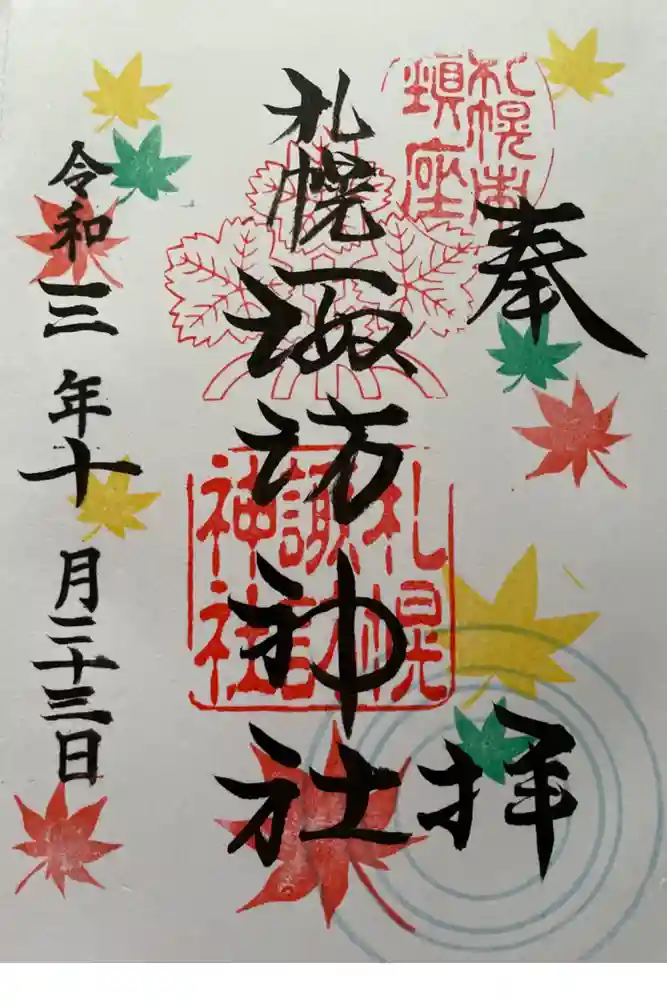 奉拝
札幌市
鎮座
札幌諏訪神社
札幌
諏訪
神社
令和三年十月二十三日